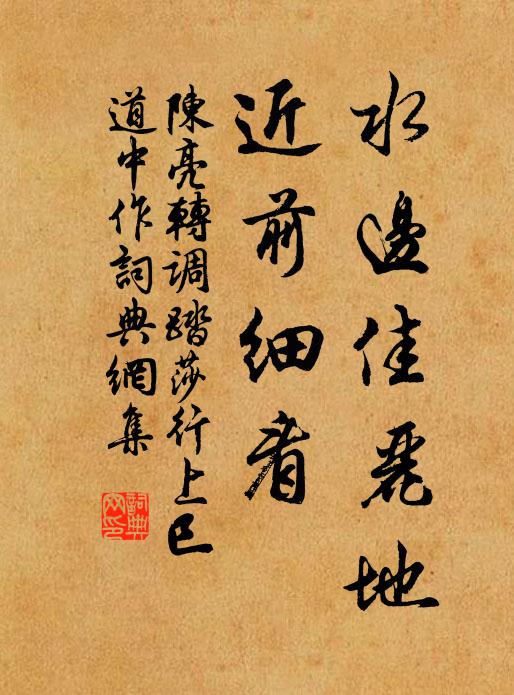 水邊佳麗地
近前細看
陳亮轉調踏莎行上巳
道中作詞典網集
詞典網印